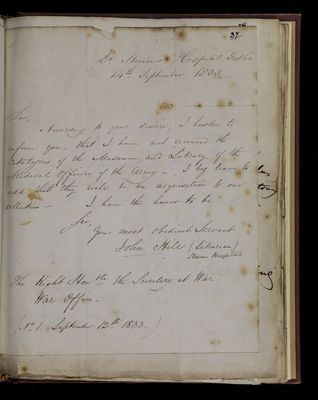 37
Dr Steevens Hospital Dublin
14th September 1833
Sir,
According to your desire, I hasten to
inform you, that I have not received the
Catalogues of the Museum and Library of the
Medical Officers of the Army - I beg leave to
add that they will be an acquisition to our
collection - I have the honor to be
Sir,
Your most obedient Servant
John Hill (Librarian)
Hospital
The Right Honble the Secretary at War
War Office
(No 1. September 12th 1833 -)